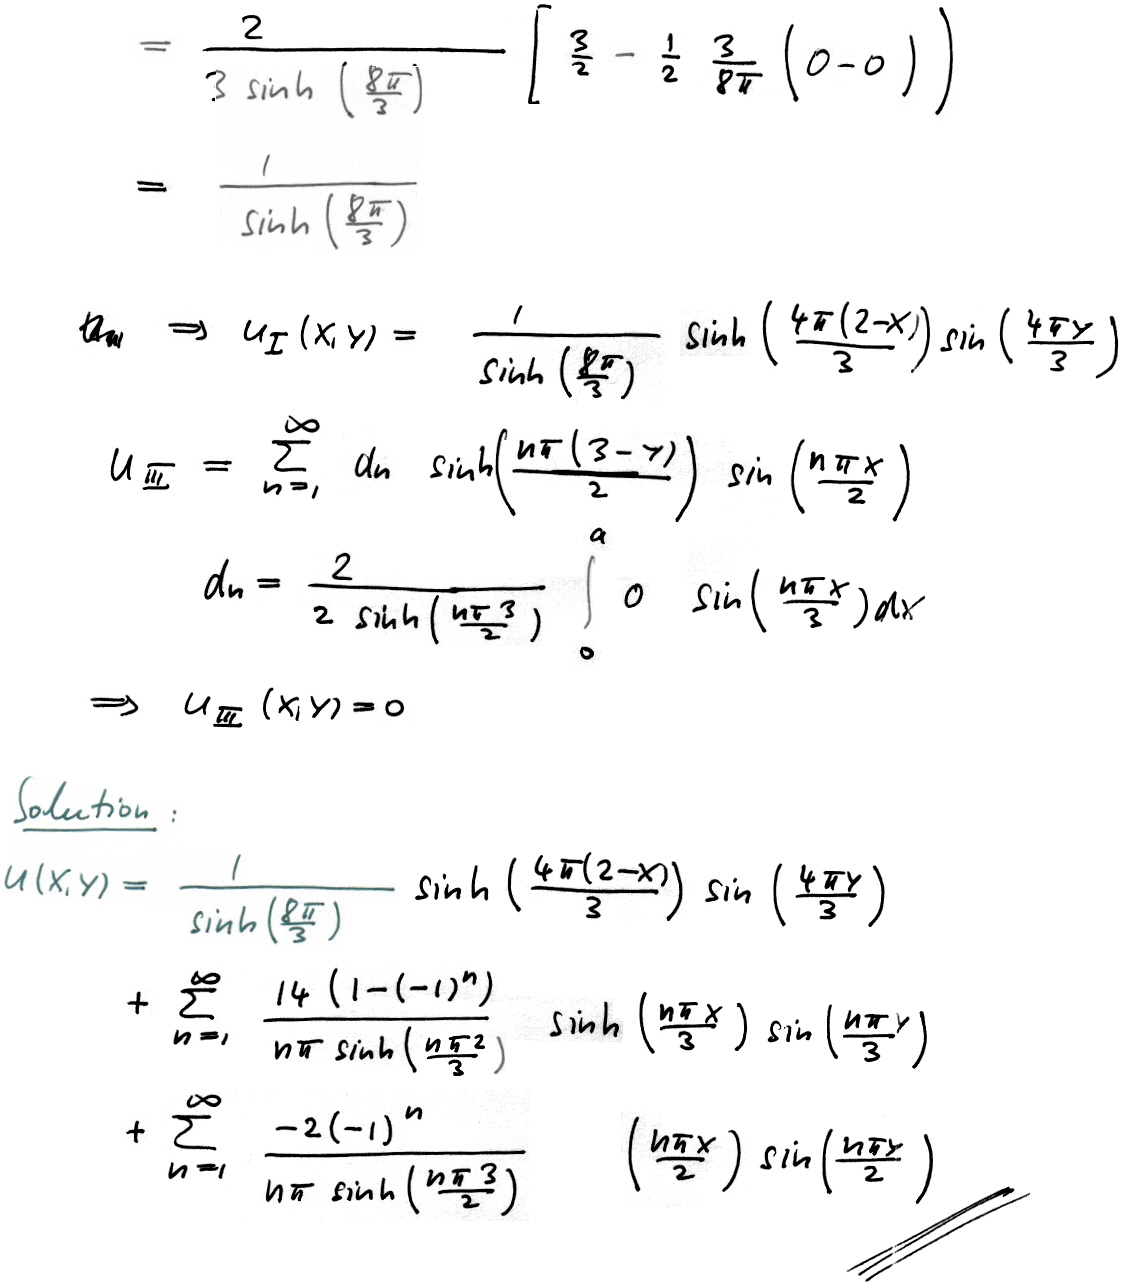 = 2 / (3 sinh (8π/3)) [ 3/2 - 1/2 3/8π (0-0) )
= 1 / sinh (8π/3)
⇒ u_I (x,y) = 1 / sinh (8π/3) sinh (4π(2-x)/3) sin (4πy/3)
u_III = ∑_{n=1}^{∞} dn sinh (nπ(3-y)/2) sin (nπx/2)
dn = 2 / (2 sinh (nπ3/2)) ∫_0^a 0 sin (nπx/3) dx
⇒ u_III (x,y) = 0
Solution :
u(x,y) = 1 / sinh (8π/3) sinh (4π(2-x)/3) sin (4πy/3)
+ ∑_{n=1}^{∞} 14 (1-(-1)^n) / (nπ sinh (nπ2/3)) sinh (nπx/3) sin (nπy/3)
+ ∑_{n=1}^{∞} -2(-1)^n / (nπ sinh (nπ3/2)) (nπx/2) sin (nπy/2)